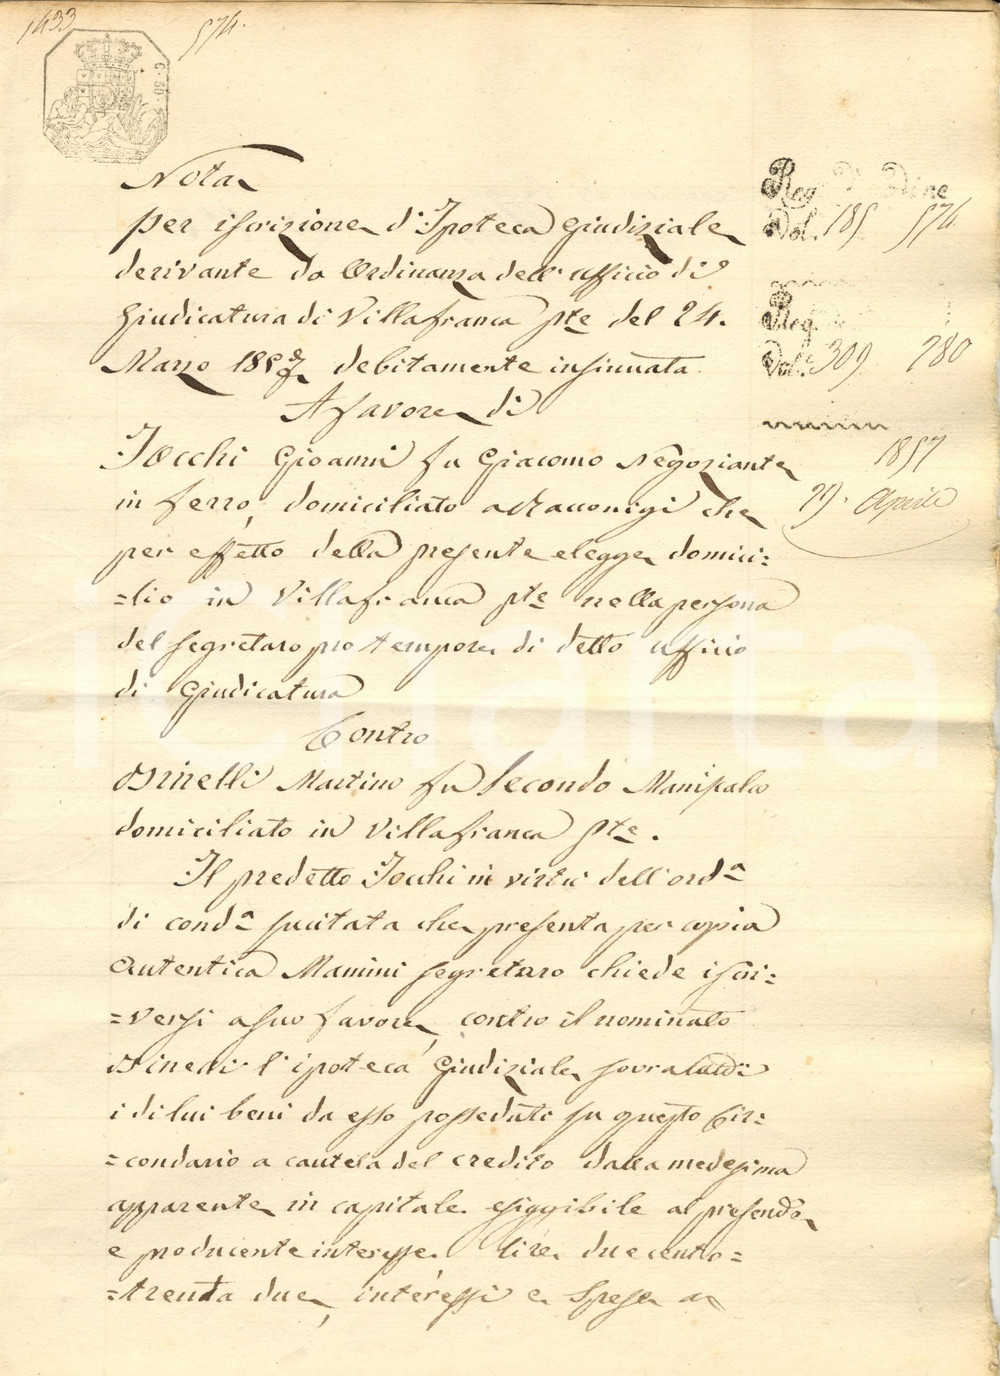 1433 574.
C. 50
Nota
per iscrizione d'Ipoteca Giudiziale
derivante da Ordinanza dell'ufficio di
Giudicatura di Villafranca pte del 24.
Marzo 1857 debitamente insinuata.
A favore di
Jocchi Gioanni fu Giacomo Negoziante
in ferro, domiciliato a Racconigi che
per effetto della presente elegge domici=
=lio in Villafranca pte nella persona
del segretaro pro tempore di detto ufficio
di Giudicatura
Contro
Martino fu Secondo
domiciliato in Villafranca pte.
Il predetto Jocchi in virtù dell'orda
di conda sucitata che presenta per copia
autentica Mannini segretaro chiede iscri=
=versi a suo favore, contro il nominato
l'ipoteca Giudiziale sovra tutti
i di lui beni da esso posseduti su questo Cir=
=condario a cautela del credito dalla medesima
apparente in capitale esiggibile al presendo
e producente interesse. lire duecento=
=trenta due, interessi e spese
Reg. Ordine
Vol. 185 574.
Reg.
Vol. 309. 280
1857
29. Aprile